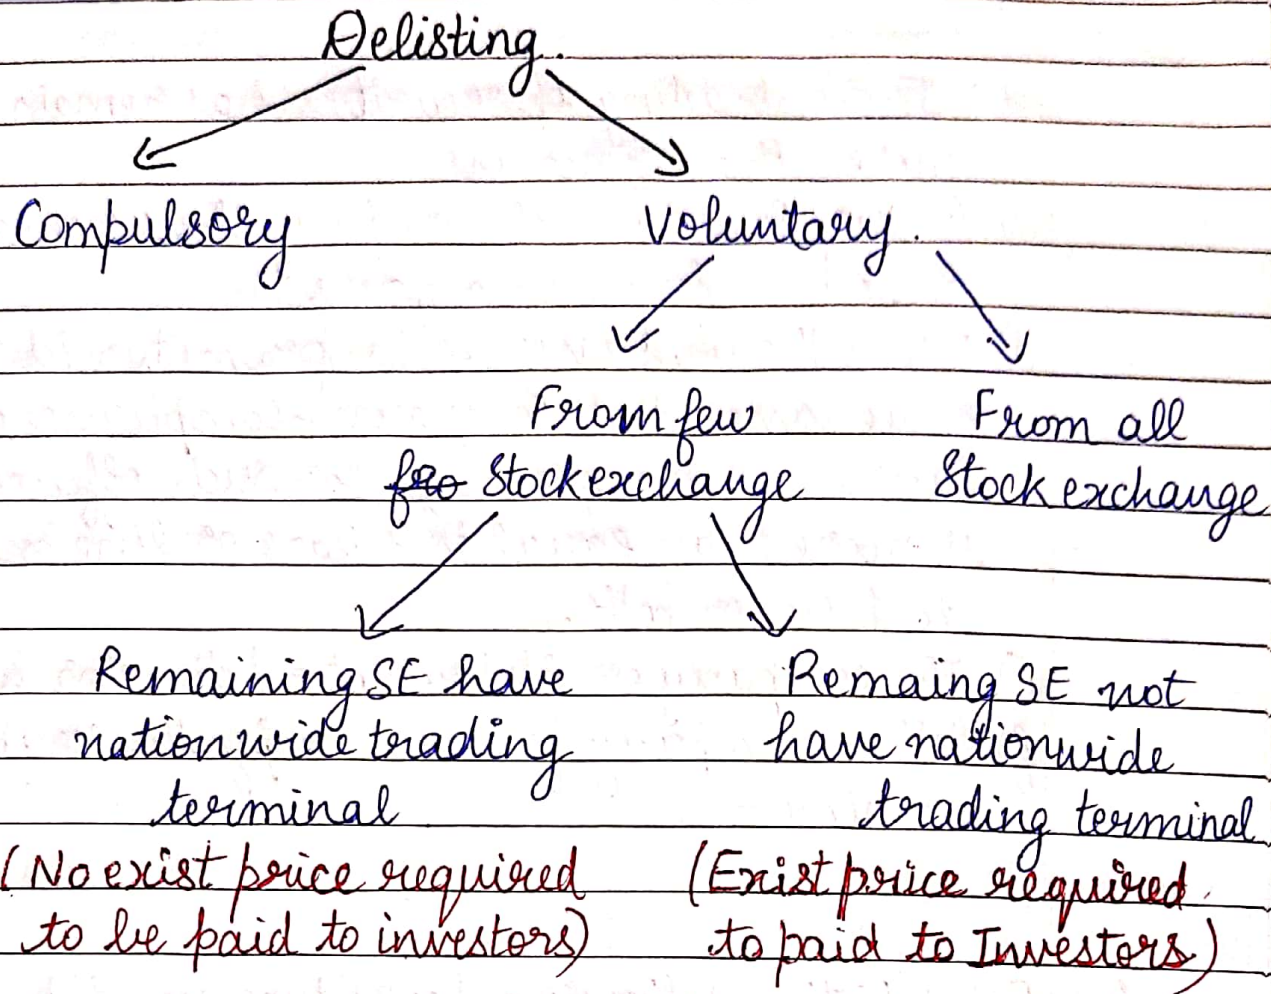 Delisting.
Compulsory
Voluntary.
From few
fro Stock exchange
From all
Stock exchange
Remaining SE have
nationwide trading
terminal
(No exist price required
to be paid to investors)
Remaing SE not
have nationwide
trading terminal
(Exist price required.
to paid to Investors)